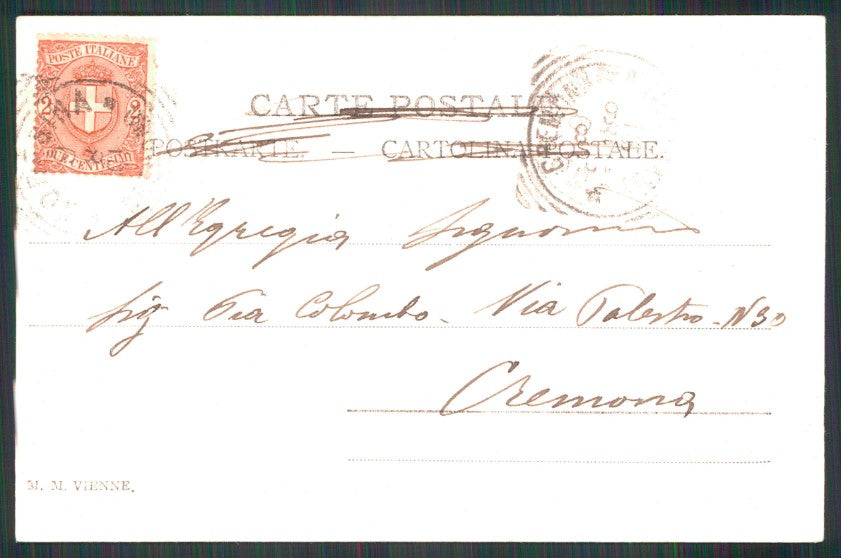 POSTE ITALIANE
2 2
DUE CENTESIMI
CARTE POSTALE
POSTKARTE. — CARTOLINA POSTALE.
CREMONA
All'Egregia Signorina
Sig Pia Colombo - Via Palestro - N 30
Cremona
M. M. VIENNE.